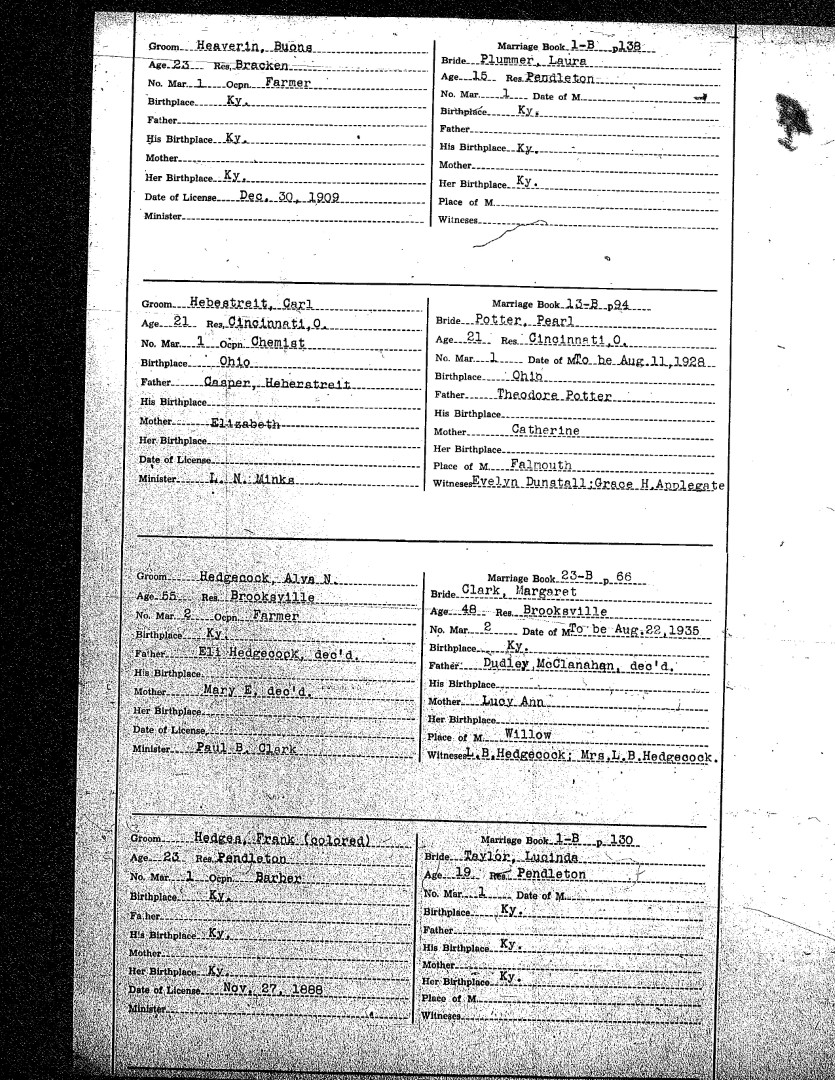 Groom Heaverin, Buona
Age 23 Res. Bracken
No. Mar. 1 Ocpn. Farmer
Birthplace Ky.
Father
His Birthplace Ky.
Mother
Her Birthplace Ky.
Date of License Dec. 30, 1909
Minister
Marriage Book 1-B p138
Bride Plummer, Laura
Age 15 Res. Pendleton
No. Mar. 1 Date of M.
Birthplace Ky.
Father
His Birthplace Ky.
Mother
Her Birthplace Ky.
Place of M.
Witneses
Groom Hebestreit, Carl
Age 21 Res. Cincinnati,O.
No. Mar. 1 Ocpn. Chemist
Birthplace Ohio
Father Casper, Heberstreit
His Birthplace
Mother Elizabeth
Her Birthplace
Date of License
Minister L. N. Minks
Marriage Book 13-B p94
Bride Potter, Pearl
Age 21 Res. Cincinnati,O.
No. Mar. 1 Date of M. To be Aug.11,1928
Birthplace Ohio
Father Theodore Potter
His Birthplace
Mother Catherine
Her Birthplace
Place of M. Falmouth
Witneses Evelyn Dunstall;Grace H.Applegate
Groom Hedgecock, Alva N.
Age 55 Res. Brooksville
No. Mar. 2 Ocpn. Farmer
Birthplace Ky.
Father Eli Hedgecock, dec'd.
His Birthplace
Mother Mary E, dec'd.
Her Birthplace
Date of License
Minister Paul B. Clark
Marriage Book 23-B p. 66
Bride Clark, Margaret
Age 48 Res. Brooksville
No. Mar. 2 Date of M. To be Aug.22,1935
Birthplace Ky.
Father Dudley McClanahan, dec'd.
His Birthplace
Mother Lucy Ann
Her Birthplace
Place of M. Willow
Witneses L.B.Hedgecock; Mrs.L.B.Hedgecock.
Groom Hedges, Frank (colored)
Age 23 Res. Pendleton
No. Mar. 1 Ocpn. Barber
Birthplace Ky.
Father
His Birthplace Ky.
Mother
Her Birthplace Ky.
Date of License Nov. 27, 1888
Minister
Marriage Book 1-B p. 130
Bride Taylor, Lucinda
Age 19 Res. Pendleton
No. Mar. 1 Date of M.
Birthplace Ky.
Father
His Birthplace Ky.
Mother
Her Birthplace Ky.
Place of M.
Witneses